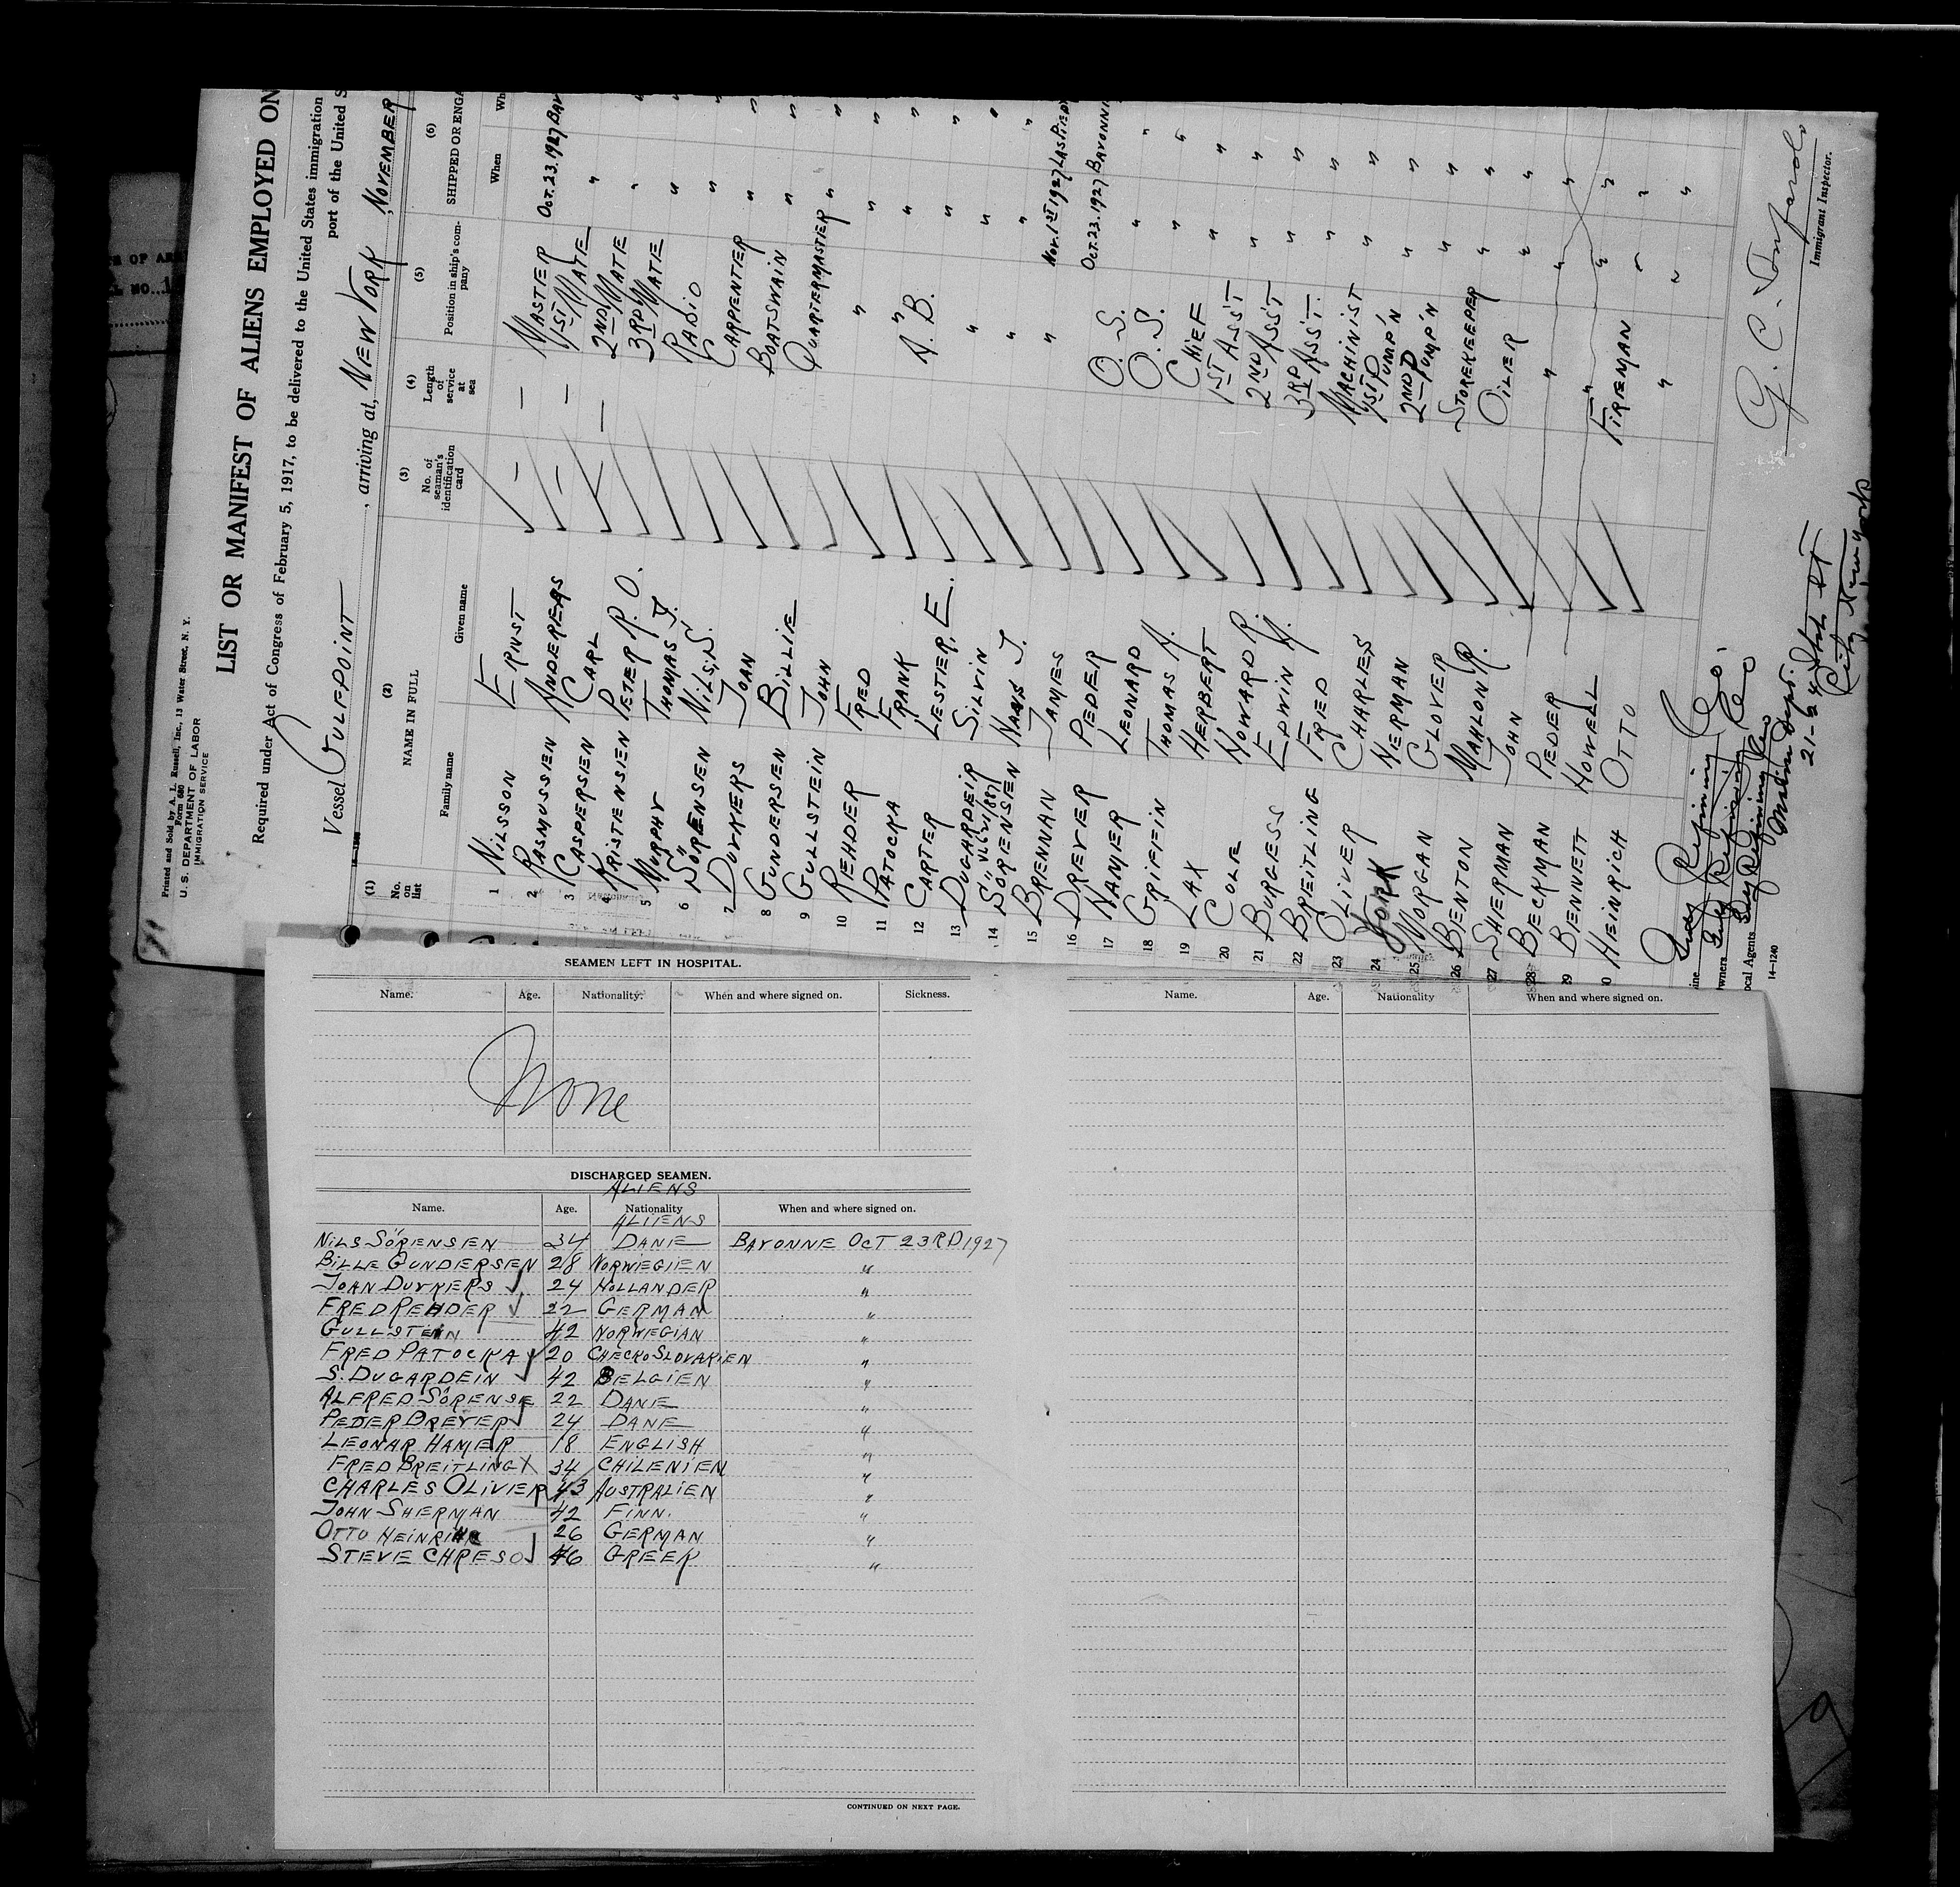 Printed and Sold by A. L. Russell, Inc., 13 Water Street, N. Y.
Form 680
U. S. DEPARTMENT OF LABOR
IMMIGRATION SERVICE
LIST OR MANIFEST OF ALIENS EMPLOYED ON
Required under Act of Congress of February 5, 1917, to be delivered to the United States immigration
port of the United S
Vessel GULFPOINT, arriving at, NEW YORK, NOVEMBER
(1) (2) (3) (4) (5) (6)
No. on list NAME IN FULL No. of seaman's identification card Length of service at sea Position in ship's company SHIPPED OR ENGA
Family name Given name When Wh
1 NILSSON ERNST — — MASTER OCT. 23. 1927 BAY
2 RASMUSSEN ANDEREAS — — 1ST MATE " "
3 CASPERSEN CARL — — 2ND MATE " "
4 KRISTENSEN PETER R. O. 3RD MATE " "
5 MURPHY THOMAS J. RADIO " "
6 SÖRENSEN NILS S. CARPENTER " "
7 DUYKERS JOAN BOATSWAIN " "
8 GUNDERSEN BILLIE QUARTERMASTER " "
9 GULLSTEIN JOHN " " "
10 REHDER FRED " " "
11 PATOCKA FRANK A. B. " "
12 CARTER LESTER. E. " " "
13 DUGARDEIN SILVIN " " "
14 SÖRENSEN J. " " "
15 BRENNAN JAMES NOV. 1ST 1927 LAS PIEDR
16 DREYER PEDER O. S. OCT. 23. 1927 BAYONNE
17 HAMER LEONARD O. S. " "
18 GRIFFIN THOMAS A. CHIEF " "
19 LAX HERBERT 1ST ASS'T " "
20 COLE HOWARD R. 2ND ASS'T " "
21 BURGESS EDWIN A. 3RD ASS'T. " "
22 BREITLING FRED MACHINIST " "
23 OLIVER CHARLES 1ST PUMP'N " "
24 YORK HERMAN 2ND PUMP'N " "
25 MORGAN CLOVER STOREKEEPER " "
26 BENTON MAHLON R. OILER " "
27 SHERMAN JOHN " " "
28 BECKMAN PEDER " " "
29 BENNETT HOWEL FIREMAN " "
0 HEINRICH OTTO " " "
ine Gulf Refining Co.
wners Gulf Refining Co
ocal Agents Gulf Refining Co
Marine Dept.
21-24 State St
City New York
14—1240
G. C.
Immigrant Inspector.
SEAMEN LEFT IN HOSPITAL.
Name. Age. Nationality. When and where signed on. Sickness.
None
DISCHARGED SEAMEN.
ALIENS
Name. Age. Nationality When and where signed on.
ALIENS
NILS SÖRENSEN 34 DANE BAYONNE OCT 23RD 1927
BILLE GUNDERSEN 28 NORWEGIEN "
JOAN DUYKERS 24 HOLLANDER "
FRED REHDER 22 GERMAN "
GULLSTEIN 42 NORWEGIAN "
FRED PATOCKA 20 CHECKOSLOVAKIEN "
S. DUGARDEIN 42 BELGIEN "
ALFRED SÖRENSE 22 DANE "
PEDER DREYER 24 DANE "
LEONAR HAMER 18 ENGLISH "
FRED BREITLING X 34 CHILENIEN "
CHARLES OLIVER 43 AUSTRALIEN "
JOHN SHERMAN 42 FINN. "
OTTO HEINRICH 26 GERMAN "
STEVE CHRESO 46 GREEK "
CONTINUED ON NEXT PAGE.
Name. Age. Nationality When and where signed on.